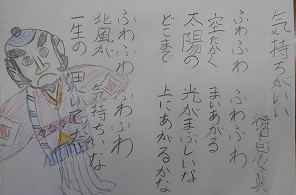 気持ちがいい
ふわふわ ふわふわ
空たかく まいあがる
太陽の 光がまぶしいな
どこまで 上にあがるかな
ふわふわ ふわふわ
北風が 気持ちいな
一生の 思い